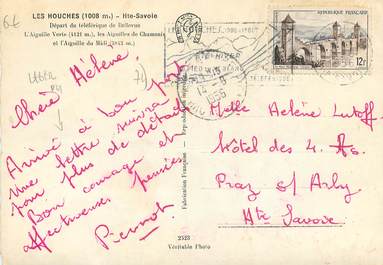 LES HOUCHES (1008 m.) - Hte-Savoie
Départ du téléférique de Bellevue
L'Aiguille Verte (4121 m.), les Aiguilles de Chamonix
et l'Aiguille du Midi (3842 m.)
Chère Hélène,
Arrivé à bon port
Une lettre suivra
pour plus de détails
Bon courage et
affectueuses pensées
Pierrot.
Fabrication Française
2523
Véritable Photo
REPUBLIQUE FRANÇAISE
12F
POSTES
Melle Hélène Lutoff
Hôtel des 4
Praz s/ Arly
Hte Savoie